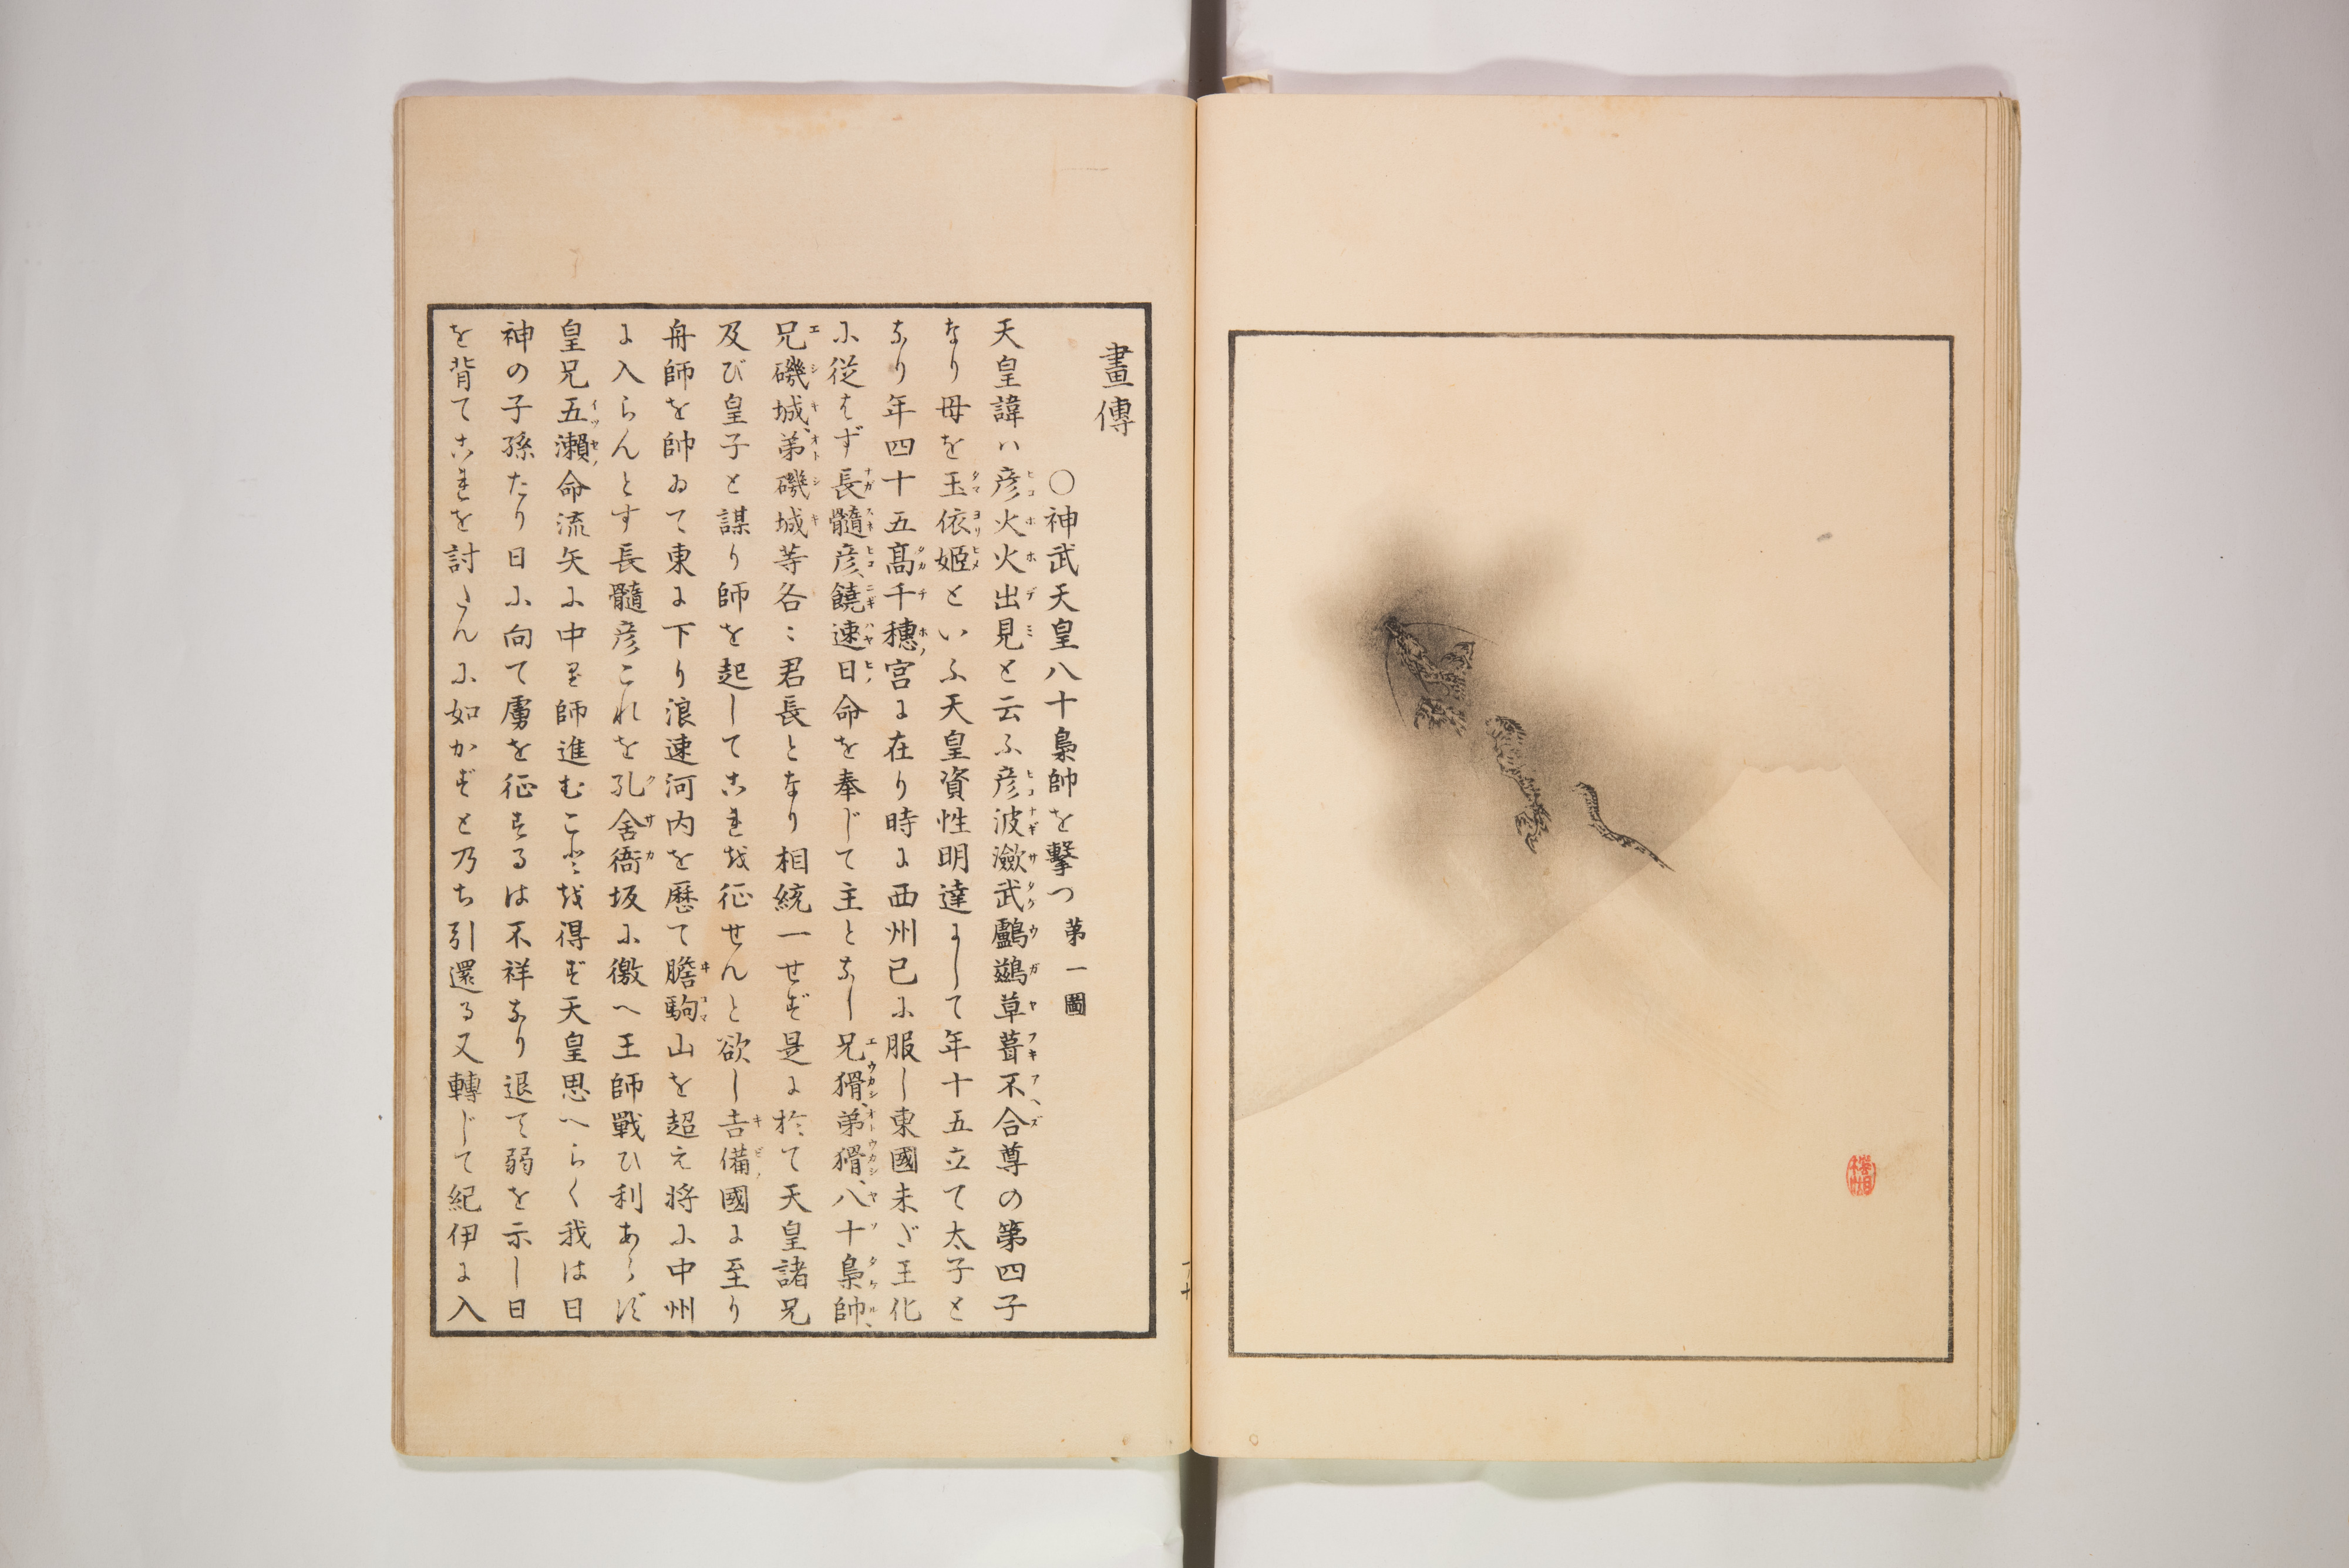 畫傳
○神武天皇八十梟帥を擊つ 第一圖
天皇諱ハ彦火火出見と云ふ彦波瀲武鸕鷀草葺不合尊の第四子
なり母を玉依姬といふ天皇資性明達にして年十五立て太子と
なり年四十五髙千穗宮に在り時に西州已に服し東國未だ王化
に従はず長髓彦、饒速日命を奉じて主となし兄猾、弟猾、八十梟帥、
兄磯城、弟磯城等各〻君長となり相統一せず是に於て天皇諸兄
及び皇子と謀り師を起してこれを征せんと欲し吉備國に至り
舟師を帥ゐて東に下り浪速河内を歷て膽駒山を超え将に中州
に入らんとす長髓彦これを孔舍衞坂に徼へ王師戰ひ利あらず
皇兄五瀨命流矢に中り師進むことを得ず天皇思へらく我は日
神の子孫たり日に向て虜を征するは不祥なり退て弱を示し日
を背てこれを討たんに如かずと乃ち引還る又轉じて紀伊に入